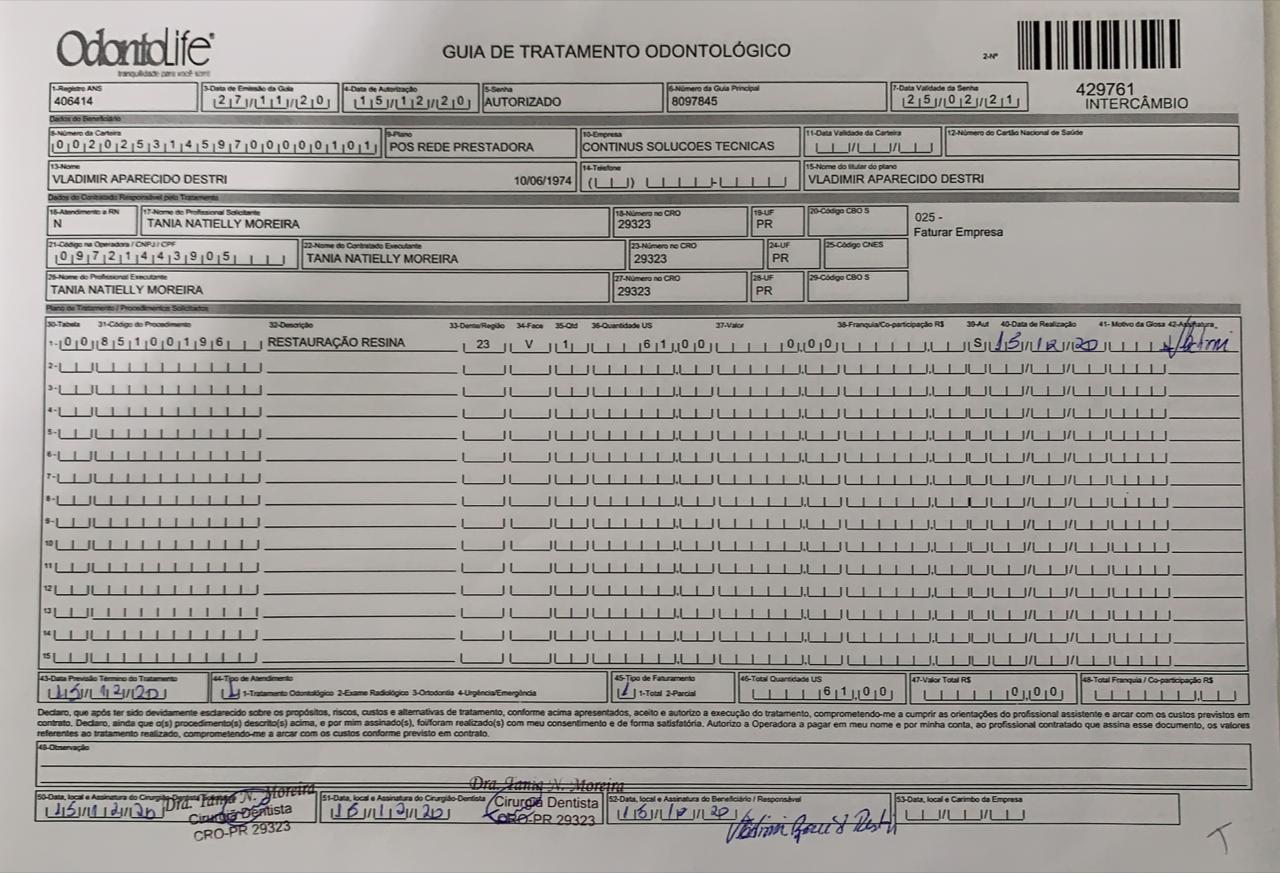 OdontoLife
tranquilidade para você sorrir
GUIA DE TRATAMENTO ODONTOLÓGICO
2-Nº
429761
INTERCÂMBIO
1-Registro ANS
406414
3-Data de Emissão da Guia
27/11/20
4-Data de Autorização
15/12/20
5-Senha
AUTORIZADO
6-Número da Guia Principal
8097845
7-Data Validade da Senha
25/02/21
Dados do Beneficiário
8-Número da Carteira
00202531459700000101
9-Plano
POS REDE PRESTADORA
10-Empresa
CONTINUS SOLUCOES TECNICAS
11-Data Validade da Carteira
12-Número do Cartão Nacional de Saúde
13-Nome
VLADIMIR APARECIDO DESTRI 10/06/1974
14-Telefone
15-Nome do titular do plano
VLADIMIR APARECIDO DESTRI
Dados do Contratado Responsável pelo Tratamento
16-Atendimento a RN
N
17-Nome do Profissional Solicitante
TANIA NATIELLY MOREIRA
18-Número no CRO
29323
19-UF
PR
20-Código CBO S
025 -
Faturar Empresa
21-Código na Operadora / CNPJ / CPF
09721443905
22-Nome do Contratado Executante
TANIA NATIELLY MOREIRA
23-Número no CRO
29323
24-UF
PR
25-Código CNES
26-Nome do Profissional Executante
TANIA NATIELLY MOREIRA
27-Número no CRO
29323
28-UF
PR
29-Código CBO S
Plano de Tratamento / Procedimentos Solicitados
30-Tabela 31-Código do Procedimento 32-Descrição 33-Dente/Região 34-Face 35-Qtd 36-Quantidade US 37-Valor 38-Franquia/Co-participação R$ 39-Aut 40-Data de Realização 41- Motivo da Glosa 42-Assinatura
1- 00 85100196 RESTAURAÇÃO RESINA 23 V 1 61,00 0,00 S 15/12/20
2-
3-
4-
5-
6-
7-
8-
9-
10
11
12
13
14
15
43-Data Previsão Término do Tratamento
15/12/20
44-Tipo de Atendimento
1 1-Tratamento Odontológico 2-Exame Radiológico 3-Ortodontia 4-Urgência/Emergência
45-Tipo de Faturamento
1 1-Total 2-Parcial
46-Total Quantidade US
61,00
47-Valor Total R$
0,00
48-Total Franquia / Co-participação R$
Declaro, que após ter sido devidamente esclarecido sobre os propósitos, riscos, custos e alternativas de tratamento, conforme acima apresentados, aceito e autorizo a execução do tratamento, comprometendo-me a cumprir as orientações do profissional assistente e arcar com os custos previstos em
contrato. Declaro, ainda que o(s) procedimento(s) descrito(s) acima, e por mim assinado(s), foi/foram realizado(s) com meu consentimento e de forma satisfatória. Autorizo a Operadora a pagar em meu nome e por minha conta, ao profissional contratado que assina esse documento, os valores
referentes ao tratamento realizado, comprometendo-me a arcar com os custos conforme previsto em contrato.
49-Observação
50-Data, local e Assinatura do Cirurgião-Dentista
15/12/20
Dra. Tania N. Moreira
Cirurgiã Dentista
CRO-PR 29323
51-Data, local e Assinatura do Cirurgião-Dentista
15/12/20
Dra. Tania N. Moreira
Cirurgiã Dentista
CRO-PR 29323
52-Data, local e Assinatura do Beneficiário / Responsável
15/12/20
53-Data, local e Carimbo da Empresa
T